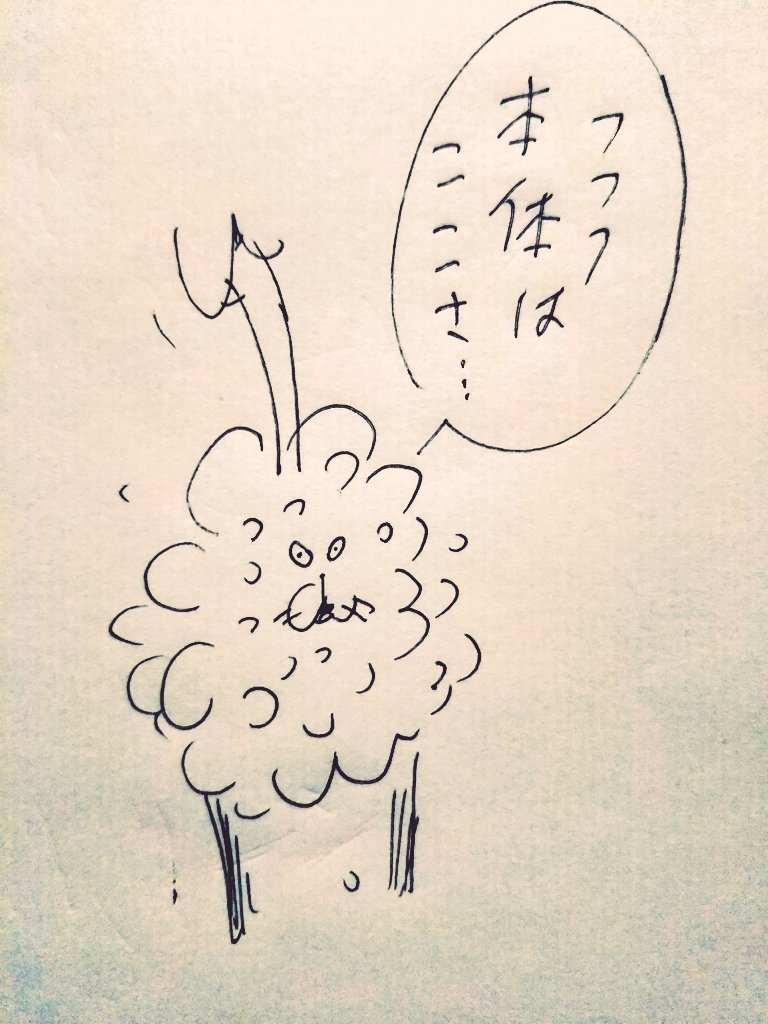 フフフ
本体は
ここさ…